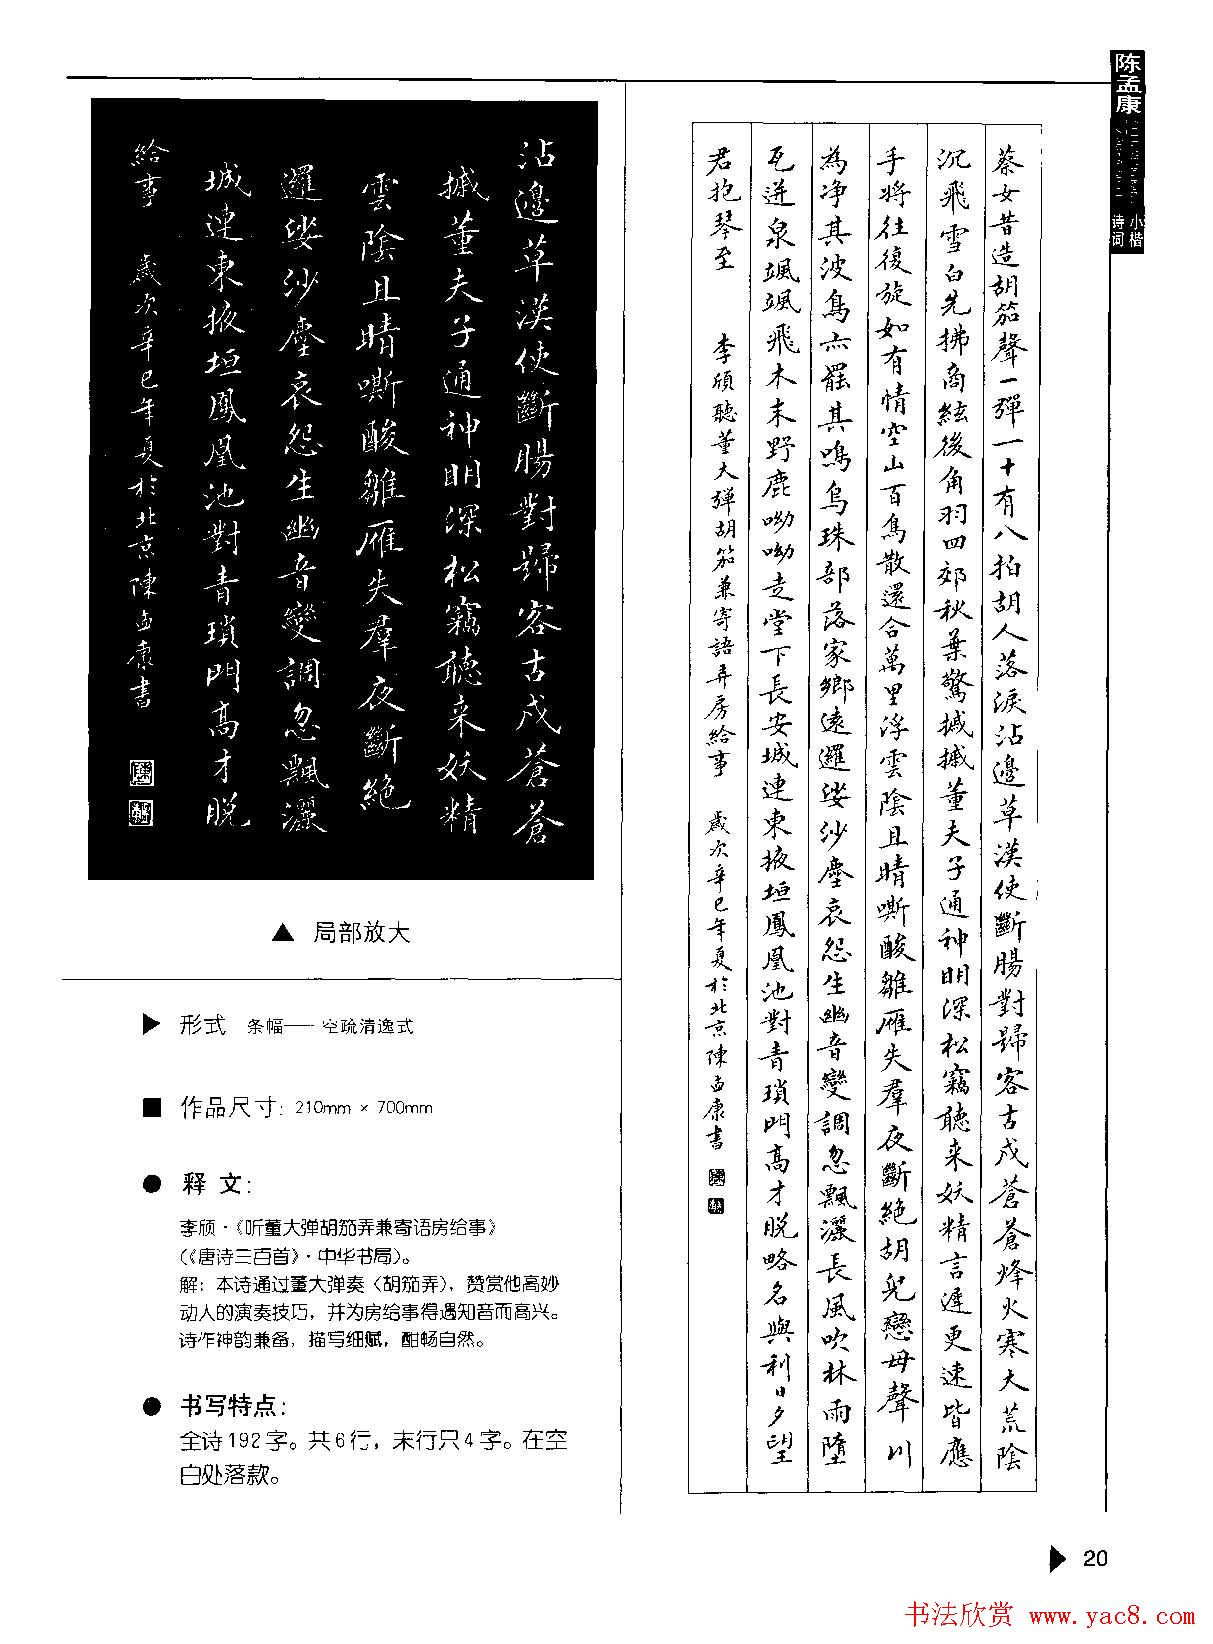 陈孟康
小楷
诗词
蔡女昔造胡笳聲一彈一十有八拍胡人落淚沾邊草漢使斷腸對歸客古戍蒼蒼烽火寒大荒陰
沉飛雪白先拂商絃後角羽四郊秋葉驚摵摵董夫子通神明深松竊聽来妖精言遲更速皆應
手將往復旋如有情空山百鳥散還合萬里浮雲陰且晴嘶酸雛雁失羣夜斷絶胡兒戀母聲川
為净其波鳥亦罷其鳴烏珠部落家鄉遠邏娑沙塵哀怨生幽音變調忽飄灑長風吹林雨墮
瓦迸泉颯颯飛木末野鹿呦呦走堂下長安城連東掖垣鳳凰池對青瑣門高才脱略名與利日夕望
君抱琴至 李頎聽董大彈胡笳兼寄語弄房給事 歲次辛巳年夏於北京陳孟康書
沾邊草漢使斷腸對歸客古戍蒼蒼
摵董夫子通神明深松竊聽来妖精
雲陰且晴嘶酸雛雁失羣夜斷絶
邏娑沙塵哀怨生幽音變調忽飄灑
城連東掖垣鳳凰池對青瑣門高才脱
給事 歲次辛巳年夏於北京陳孟康書
▲ 局部放大
▶ 形式 条幅——空疏清逸式
■ 作品尺寸: 210mm × 700mm
● 释 文:
李颀·《听董大弹胡笳弄兼寄语房给事》
(《唐诗三百首》·中华书局)。
解: 本诗通过董大弹奏〈胡笳弄〉, 赞赏他高妙
动人的演奏技巧, 并为房给事得遇知音而高兴。
诗作神韵兼备, 描写细腻, 酣畅自然。
● 书写特点:
全诗192字。共6行, 末行只4字。在空
白处落款。
▶ 20
书法欣赏 www.yac8.com